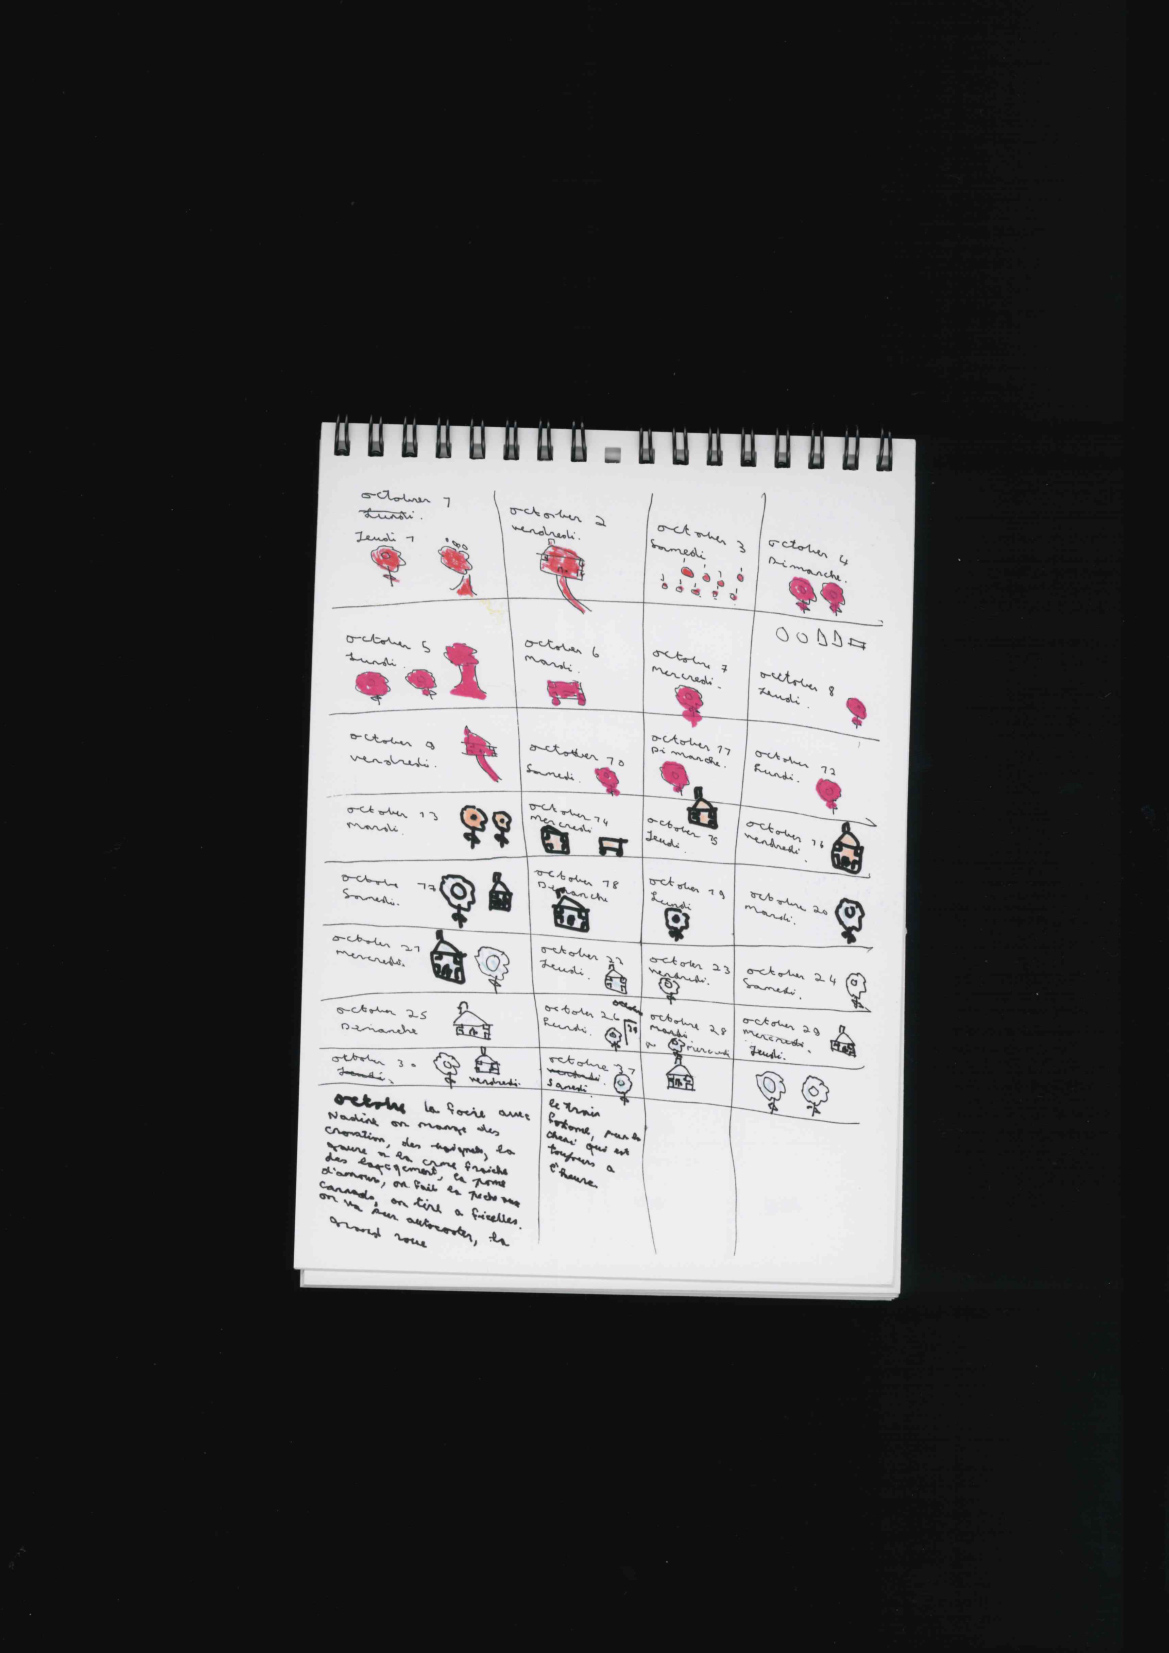 october 1
Lundi.
Jeudi 1
october 2
vendredi.
october 3
Samedi
october 4
Dimanche.
october 5
Lundi.
october 6
mardi.
octobre 7
mercredi.
october 8
Jeudi.
october 9
vendredi.
october 10
Samedi.
october 11
Dimanche.
october 12
Lundi.
october 13
mardi.
october 14
mercredi
october 15
Jeudi.
october 16
vendredi.
octobre 17
Samedi.
october 18
Dimanche
october 19
Lundi
octobre 20
mardi.
october 21
mercredi.
october 22
Jeudi.
october 23
vendredi.
october 24
Samedi.
october 25
Dimanche
october 26
Lundi.
octobre 28
mardi
mercredi
october 29
mercredi.
Jeudi.
october 30
Jeudi.
vendredi.
octobre 31
vendredi.
Samedi.
octobre la foire avec
Nadine on mange des
des beignets, la
gaufre a la creme fraiche
la pome
d'amour, on fait la peche aux
cannads, on tire a ficelles.
on va sur autocoster, la
grand roue
le train
fatome,
qui est
toujours a
l'heure.